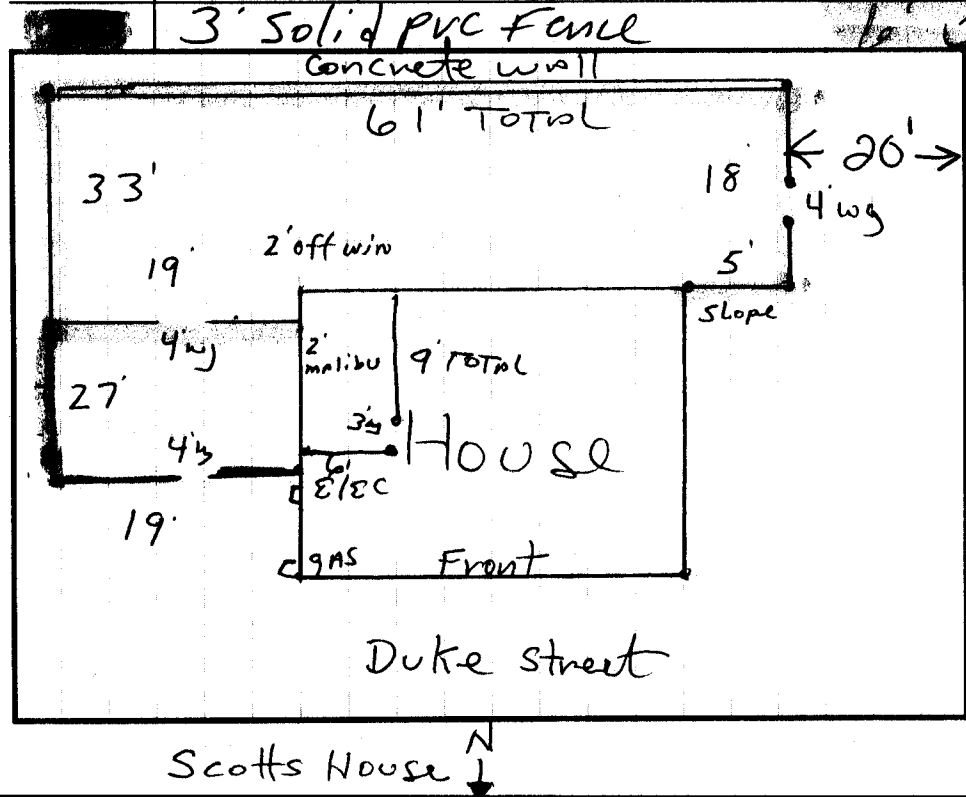 3' Solid PVC Fence
6'
Concrete wall
61' TOTAL
33'
18'
20'
4'wg
19'
2' off win
5'
Slope
4'wg
2'
malibu
9' TOTAL
27'
3'g
House
4'g
6'
ElEC
19'
gAS
Front
Duke Street
N
Scotts House